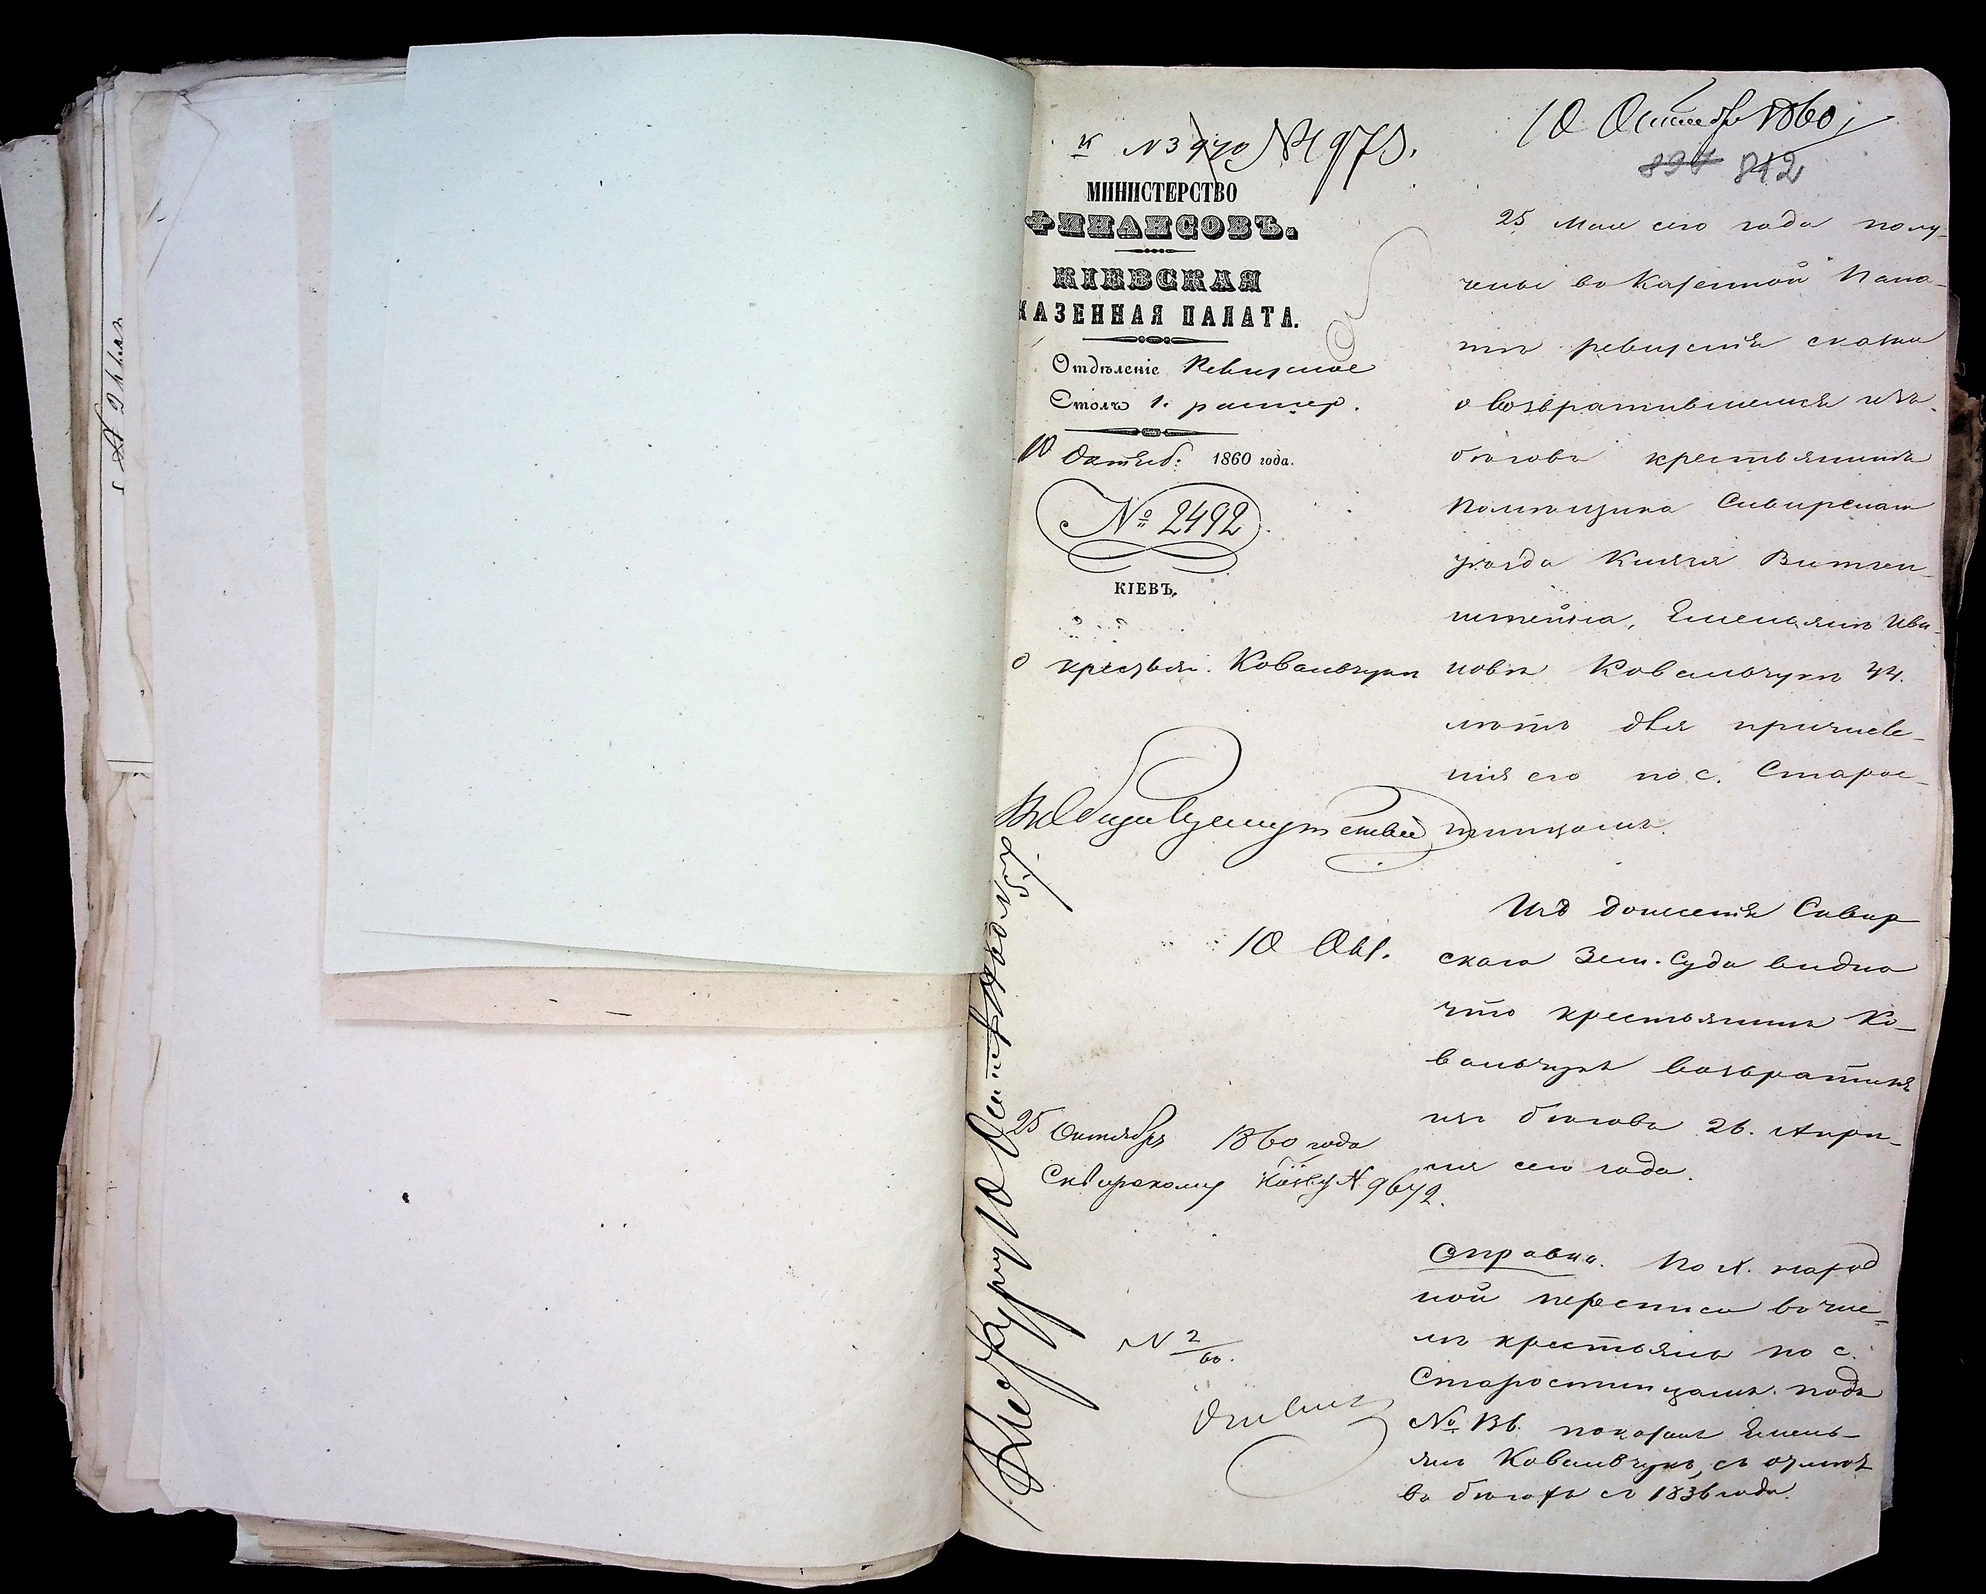 10 Октября 1860
к № 3970 № 4973.
894 842
МИНИСТЕРСТВО
ФИНАНСОВЪ.
КІЕВСКАЯ
КАЗЕННАЯ ПАЛАТА.
Отдѣленіе Ревизское
Столъ 1. распор.
10 Октяб: 1860 года.
№ 2492
КІЕВЪ.
о крестьян. Ковальчукѣ
10 Окт.
25 Октября 1860 года
Сквирскому Казн-ву № 9672.
№ 2/60.
25 Мая сего года полу-
чены въ Казенной Пала-
тѣ ревизскія сказки
о возвратившемся изъ
бѣговъ крестьянинѣ
Помѣщика Сквирскаго
уѣзда Князя Витген-
штейна, Емельянъ Ива-
новъ Ковальчукъ 44.
лѣтъ для причисле-
нія его по с. Старос-
тинцамъ.
Изъ донесенія Сквир
скаго Зем. Суда видно
что крестьянинъ Ко-
вальчукъ возвратился
изъ бѣговъ 26. Апрѣ-
ля сего года.
Справка. По X. народ
ной переписи въ чис-
лѣ крестьянъ по с.
Старостинцамъ подъ
№ 136. показанъ Емель-
янъ Ковальчукъ, съ отмѣт
въ бѣгахъ съ 1836 года.